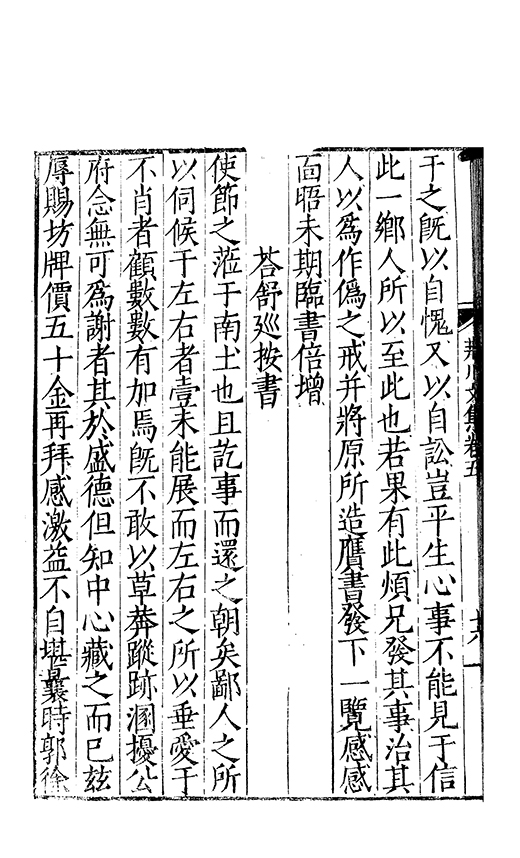 荆川文集卷五
十六
于之旣以自愧又以自訟豈平生心事不能見于信
此一鄉人所以至此也若果有此煩兄發其事治其
人以爲作僞之戒并將原所造贋書發下一覽感感
面晤未期臨書倍增
荅舒廵按書
使節之蒞于南土也且訖事而還之朝矣鄙人之所
以伺候于左右者壹未能展而左右之所以垂愛于
不肖者顧數數有加焉旣不敢以草莽蹤跡溷擾公
府念無可爲謝者其於盛德但知中心藏之而已玆
辱賜坊牌價五十金再拜感激益不自堪曩時郭徐